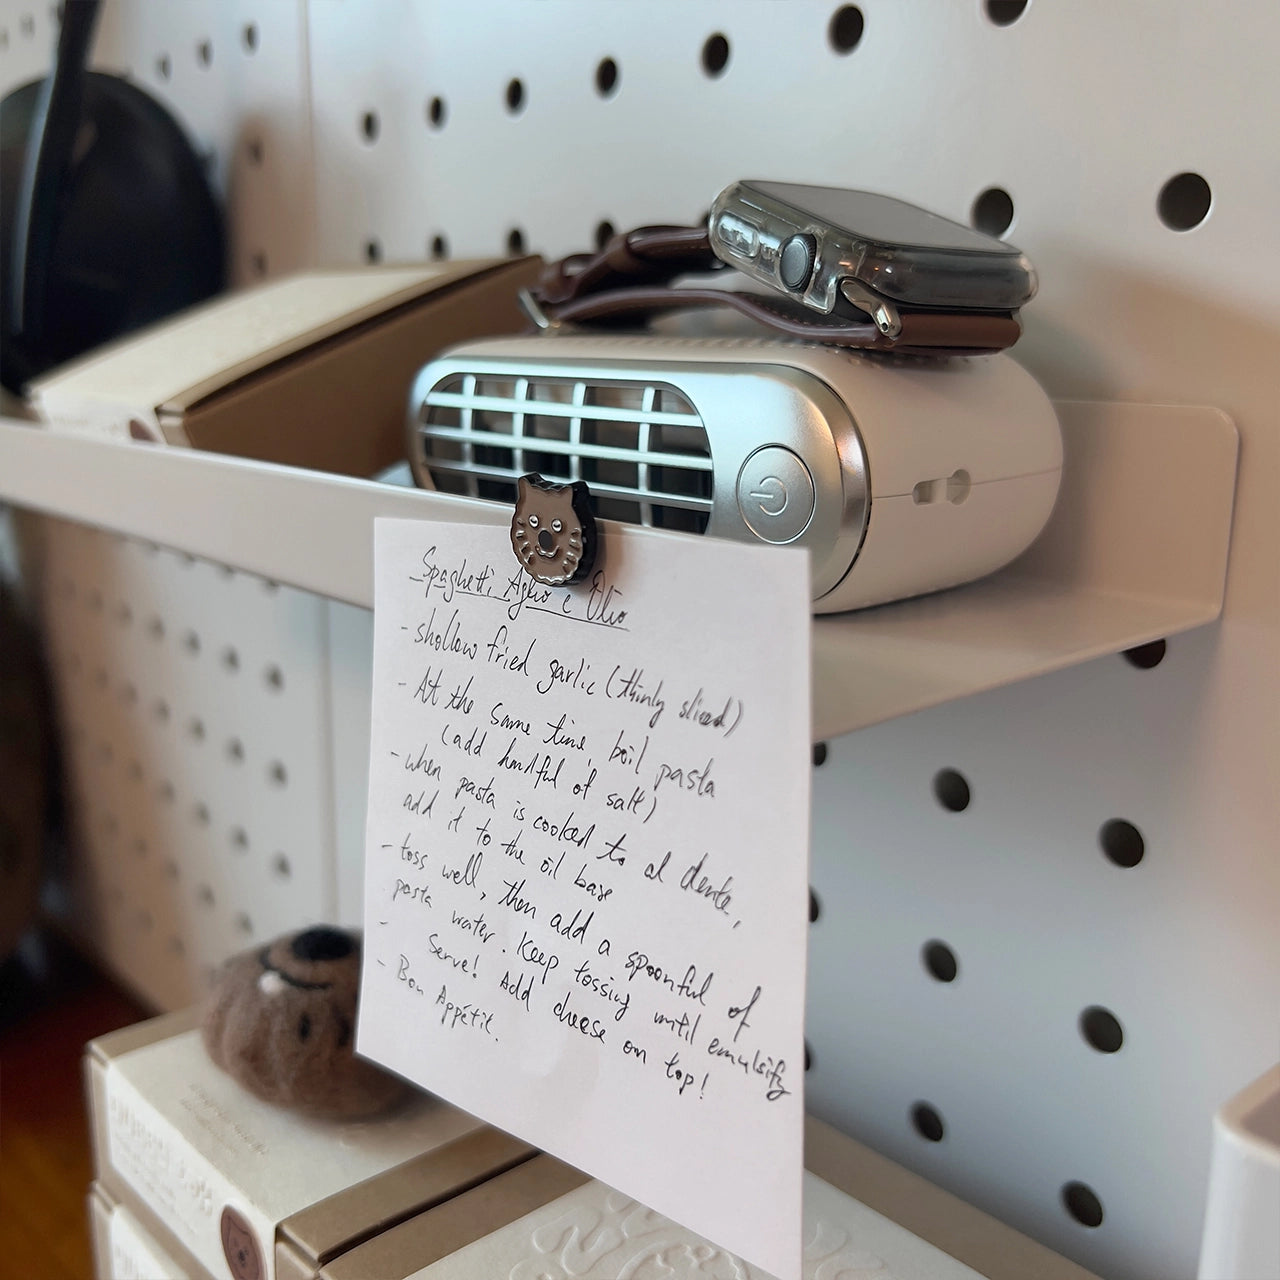 Spaghetti Aglio e Olio
- shollow fried garlic (thinly sliced)
- At the same time, boil pasta
(add handful of salt)
- when pasta is cooked to al dente,
add it to the oil base
- toss well, then add a spoonful of
pasta water. Keep tossing until emulsify
- Serve! Add cheese on top!
- Bon Appétit.